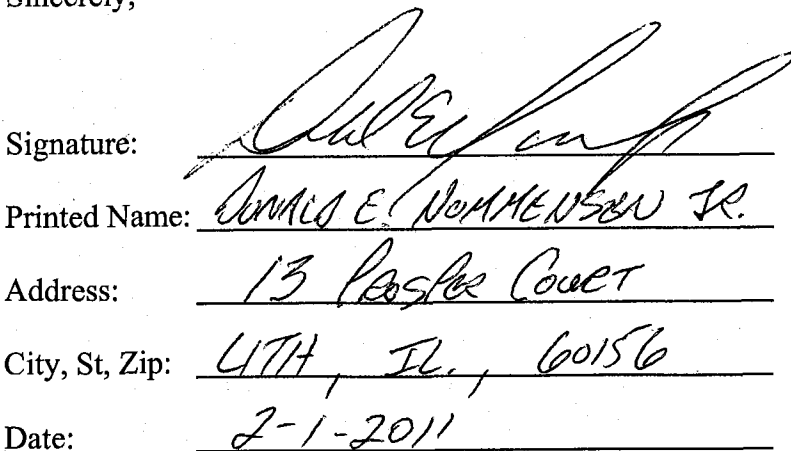 Sincerely,
Signature:
Printed Name: DONALD E. NOMMENSEN JR.
Address: 13 PROSPER COURT
City, St, Zip: LITH, IL., 60156
Date: 2-1-2011